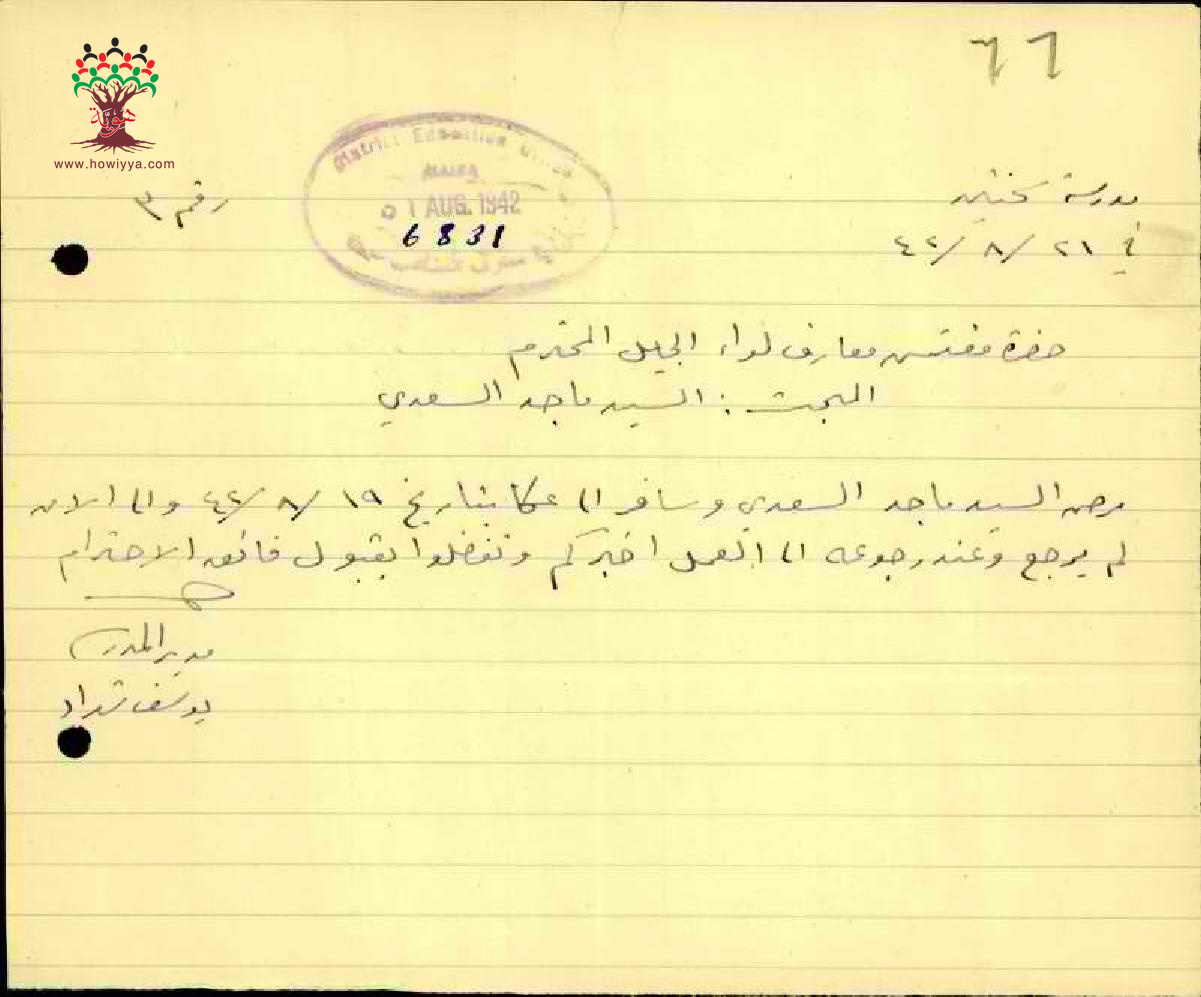 ٦٦
هوية
www.howiyya.com
District Education Office
HAIFA
1 AUG. 1942
6831
رقم ٣
مدرسة سخنين
في ٢١/٨/٤٢
حضرة مفتش معارف لواء الجليل المحترم
المبحث : السيد ماجد السعدي
مرض السيد ماجد السعدي وسافر الى عكا بتاريخ ١٩/٨/٤٢ والى الان
لم يرجع وعند رجوعه الى العمل اخبركم وتفضلوا بقبول فائق الاحترام
مدير المدرسة
يوسف شداد